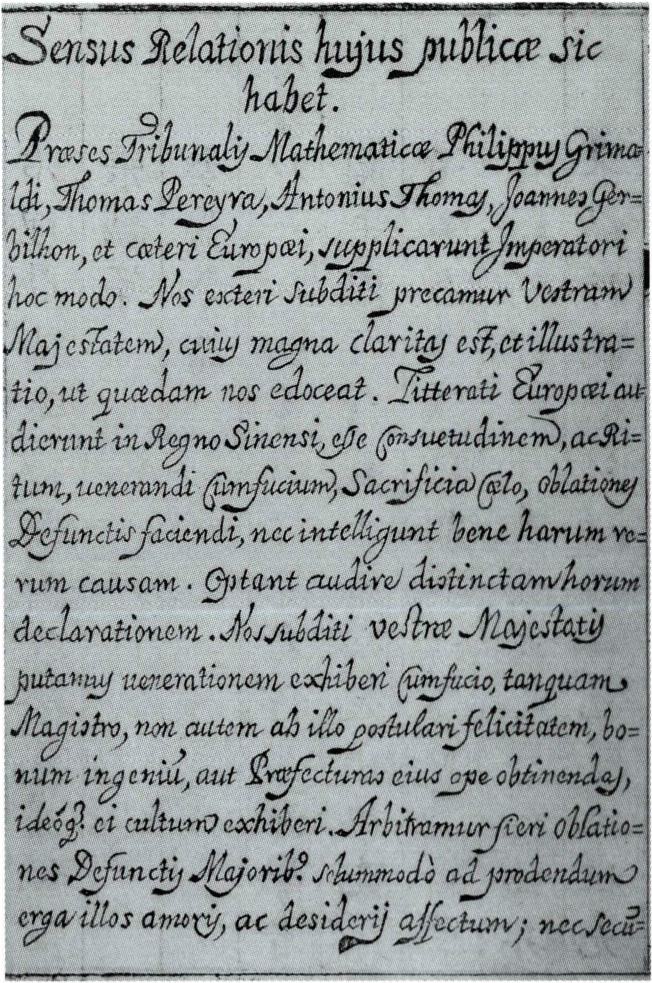 Sensus Relationis hujus publicæ sic
habet.
Præses Tribunalis Mathematicæ Philippus Grima=
ldi, Thomas Pereyra, Antonius Thomas, Joannes Ger=
bilhon, et cæteri Europæi, supplicarunt Imperatori
hoc modo. Nos exteri subditi precamur Vestram
Majestatem, cuius magna claritas est, et illustra=
tio, ut quædam nos edoceat. Litterati Europæi au=
dierunt in Regno Sinensi, esse Consuetudinem, ac Ri=
tum, venerandi Cumfucium, Sacrificia Cælo, oblationes
Defunctis faciendi, nec intelligunt bene harum re=
rum causam. Optant audire distinctam horum
declarationem. Nos subditi vestræ Majestatis
putamus venerationem exhiberi Cumfucio, tanquam
Magistro, non autem ab illo postulari felicitatem, bo=
num ingeniū, aut Præfecturas eius ope obtinendas,
ideóq; ei cultum exhiberi. Arbitramur fieri oblatio=
nes Defunctis Majorib9 solummodò ad prodendum
erga illos amoris, ac desiderij affectum; nec secū=